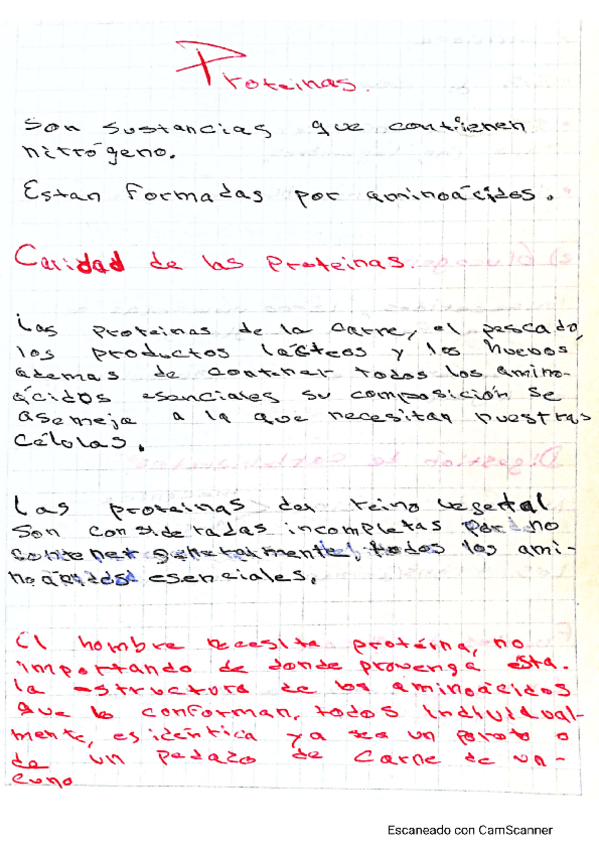 Proteinas.
Son sustancias que contienen
nitrógeno.
Estan formadas por aminoácidos.
Calidad de las Proteinas.
Las proteinas de la carne, el pescado,
los productos lácteos y los huevos
ademas de contener todos los amino-
ácidos esenciales su composición se
asemeja a la que necesitan nuestras
Célolas.
Las proteinas del reino vegetal
son consideradas incompletas por no
contener generalmente, todos los ami-
noácidos esenciales.
El hombre necesita proteína, no
importando de donde provenga esta.
la estructura de los aminoácidos
que lo conforman, todos individual-
mente, es identica ya sea un poroto o
de un pedazo de carne de va-
cuno
Escaneado con CamScanner